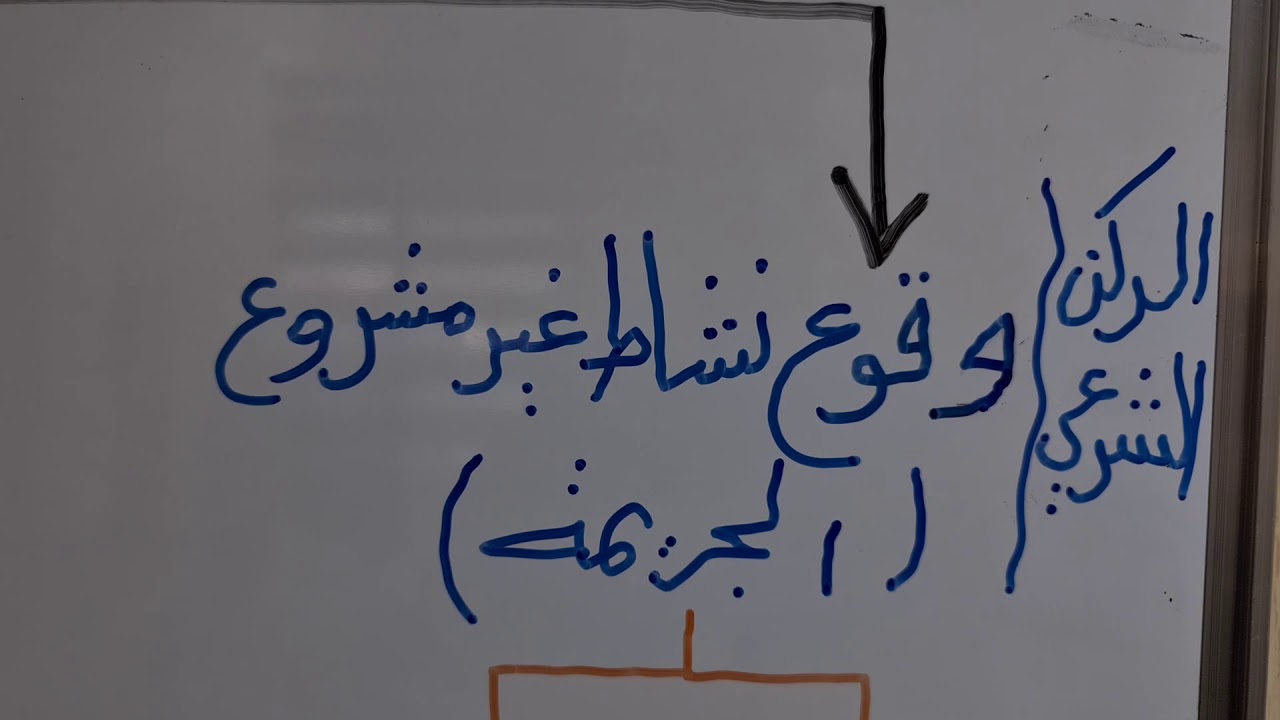 الركن
الشرعي
وقوع نشاط غير مشروع
(الجريمة)